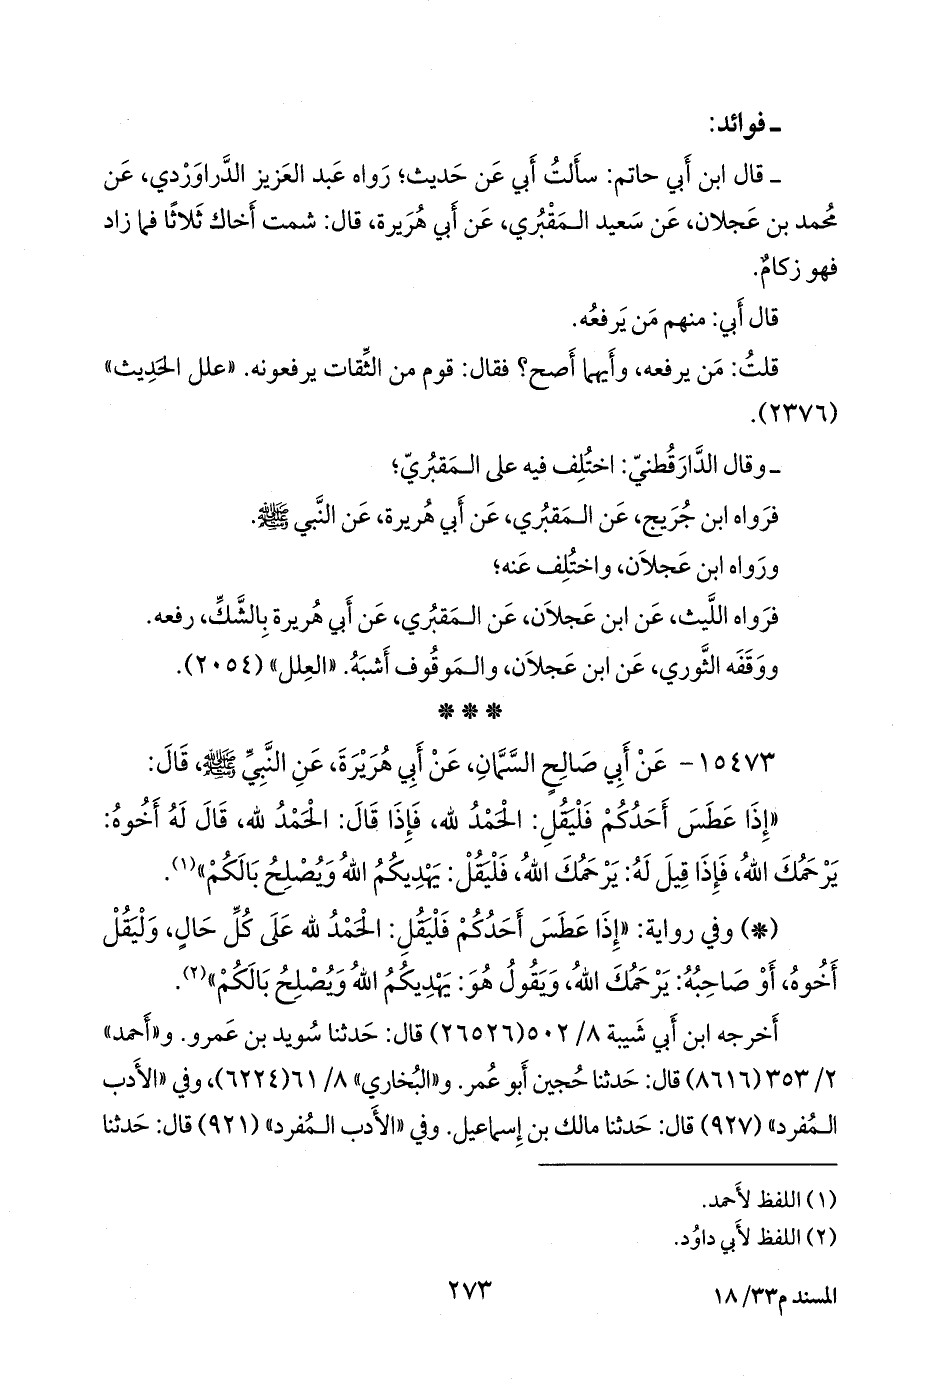 ـ فوائد:
ـ قال ابن أَبي حاتم: سأَلتُ أَبي عَن حَديث؛ رَواه عَبد العَزيز الدَّراوَرْدي، عَن
مُحمد بن عَجلان، عَن سَعيد الـمَقْبُري، عَن أَبي هُرَيرة، قال: شمت أَخاك ثَلاثًا فما زاد
فهو زكامٌ.
قال أَبي: منهم مَن يَرفعُه.
قلتُ: مَن يرفعه، وأَيهما أَصح؟ فقال: قوم من الثِّقات يرفعونه. «علل الحَدِيث»
(٢٣٧٦).
ـ وقال الدَّارَقُطنيّ: اختُلِف فيه على الـمَقبُريّ؛
فرَواه ابن جُرَيج، عَن الـمَقبُري، عَن أَبي هُريرة، عَن النَّبي ﷺ.
ورَواه ابن عَجلاَن، واختُلِف عَنه؛
فرَواه اللَّيث، عَن ابن عَجلاَن، عَن الـمَقبُري، عَن أَبي هُريرة بِالشَّكِّ، رفعه.
ووَقَفَه الثَّوري، عَن ابن عَجلاَن، والـمَوقُوف أَشبَهُ. «العِلل» (٢٠٥٤).
* * *
١٥٤٧٣ - عَنْ أَبِي صَالِحٍ السَّمَّانِ، عَنْ أَبِي هُرَيْرَةَ، عَنِ النَّبِيِّ ﷺ، قَالَ:
«إِذَا عَطَسَ أَحَدُكُمْ فَلْيَقُلِ: الْحَمْدُ لله، فَإِذَا قَالَ: الْحَمْدُ لله، قَالَ لَهُ أَخُوهُ:
يَرْحَمُكَ اللهُ، فَإِذَا قِيلَ لَهُ: يَرْحَمُكَ اللهُ، فَلْيَقُلْ: يَهْدِيكُمُ اللهُ وَيُصْلِحُ بَالَكُمْ»(١).
(*) وفي رواية: «إِذَا عَطَسَ أَحَدُكُمْ فَلْيَقُلِ: الْحَمْدُ لله عَلَى كُلِّ حَالٍ، وَلْيَقُلْ
أَخُوهُ، أَوْ صَاحِبُهُ: يَرْحَمُكَ اللهُ، وَيَقُولُ هُوَ: يَهْدِيكُمُ اللهُ وَيُصْلِحُ بَالَكُمْ»(٢).
أَخرجه ابن أَبي شَيبة ٨/ ٥٠٢(٢٦٥٢٦) قال: حَدثنا سُويد بن عَمرو. و«أَحمد»
٢/ ٣٥٣(٨٦١٦) قال: حَدثنا حُجين أَبو عُمر. و«البُخاري» ٨/ ٦١(٦٢٢٤)، وفي «الأَدب
الـمُفرد» (٩٢٧) قال: حَدثنا مالك بن إِسماعيل. وفي «الأَدب الـمُفرد» (٩٢١) قال: حَدثنا
(١) اللفظ لأَحمد.
(٢) اللفظ لأَبي داوُد.
المسند م٣٣/ ١٨
٢٧٣